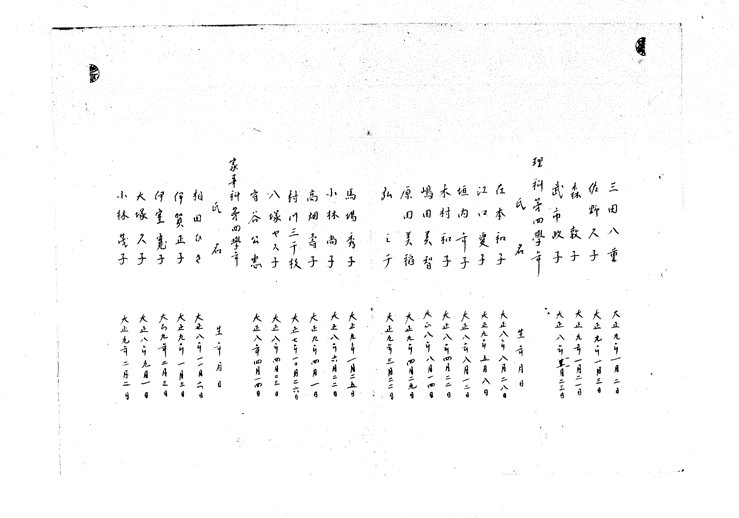 三田八重 大正九年一月二日
佐野久子 大正九年一月三日
森敦子 大正九年一月二一日
武市政子 大正八年 月二三日
理科第四學年
氏名 生年月日
在本和子 大正八年八月二八日
江口愛子 大正九年五月八日
垣内幸子 大正八年八月一二日
木村和子 大正八年四月二二日
嶋田美智 大正八年八月一四日
原田美稻 大正九年四月二九日
弘ミチ 大正九年三月二三日
馬場秀子 大正九年一月二五日
小林尚子 大正八年六月二二日
高畑壽子 大正九年四月一日
村川三千枝 大正七年一〇月二六日
八塚ヤス子 大正八年四月二三日
守谷公惠 大正八年四月一四日
家事科第四學年
氏名 生年月日
相田ひさ 大正八年一一月六日
伊賀正子 大正九年一月三日
伊室寛子 大正九年二月三日
大塚久子 大正八年九月一日
小林茂子 大正九年二月二日